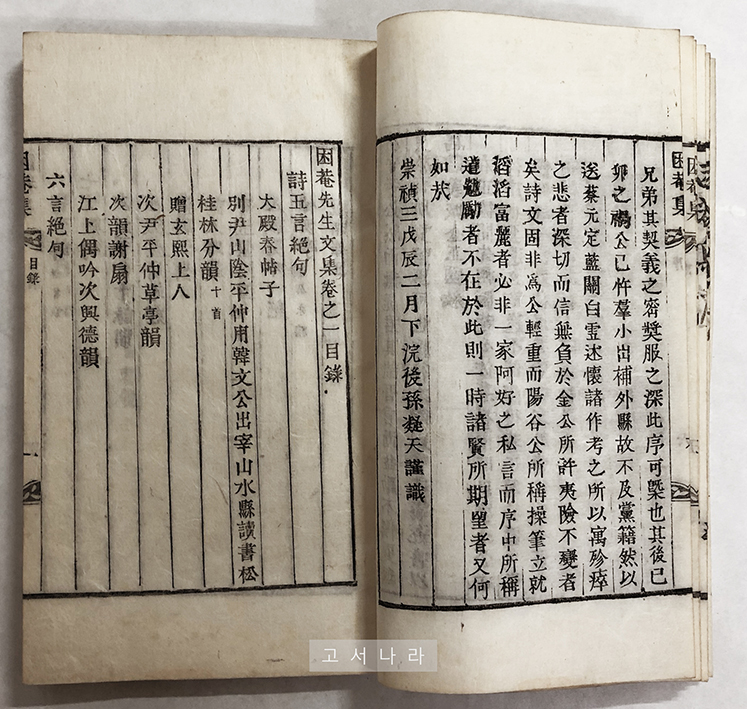 困菴集
兄弟其契義之密奬服之深此序可槩也其後己
卯之禍公已忤羣小出補外縣故不及黨籍然以
送蔡元定藍關白雪述懷諸作考之所以寓殄瘁
之悲者深切而信無負於金公所許夷險不變者
矣詩文固非爲公輕重而陽谷公所稱操筆立就
滔滔富麗者必非一家阿好之私言而序中所稱
道勉勵者不在於此則一時諸賢所期望者又何
如哉
崇禎三戊辰二月下浣後孫凝天謹識
困菴先生文集卷之一目錄
詩五言絕句
大殿春帖子
別尹山陰平仲用韓文公出宰山水縣讀書松
桂林分韻十首
贈玄熙上人
次尹平仲草亭韻
次韻謝扇
江上偶吟次興德韻
六言絕句
困菴集
目錄
一
고서나라